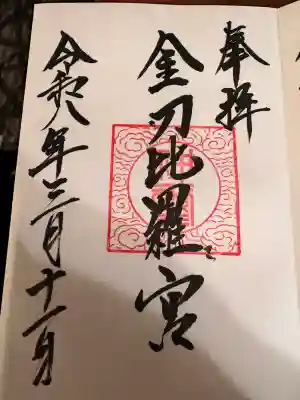 奉拝
金刀比羅宮
令和八年三月十一日